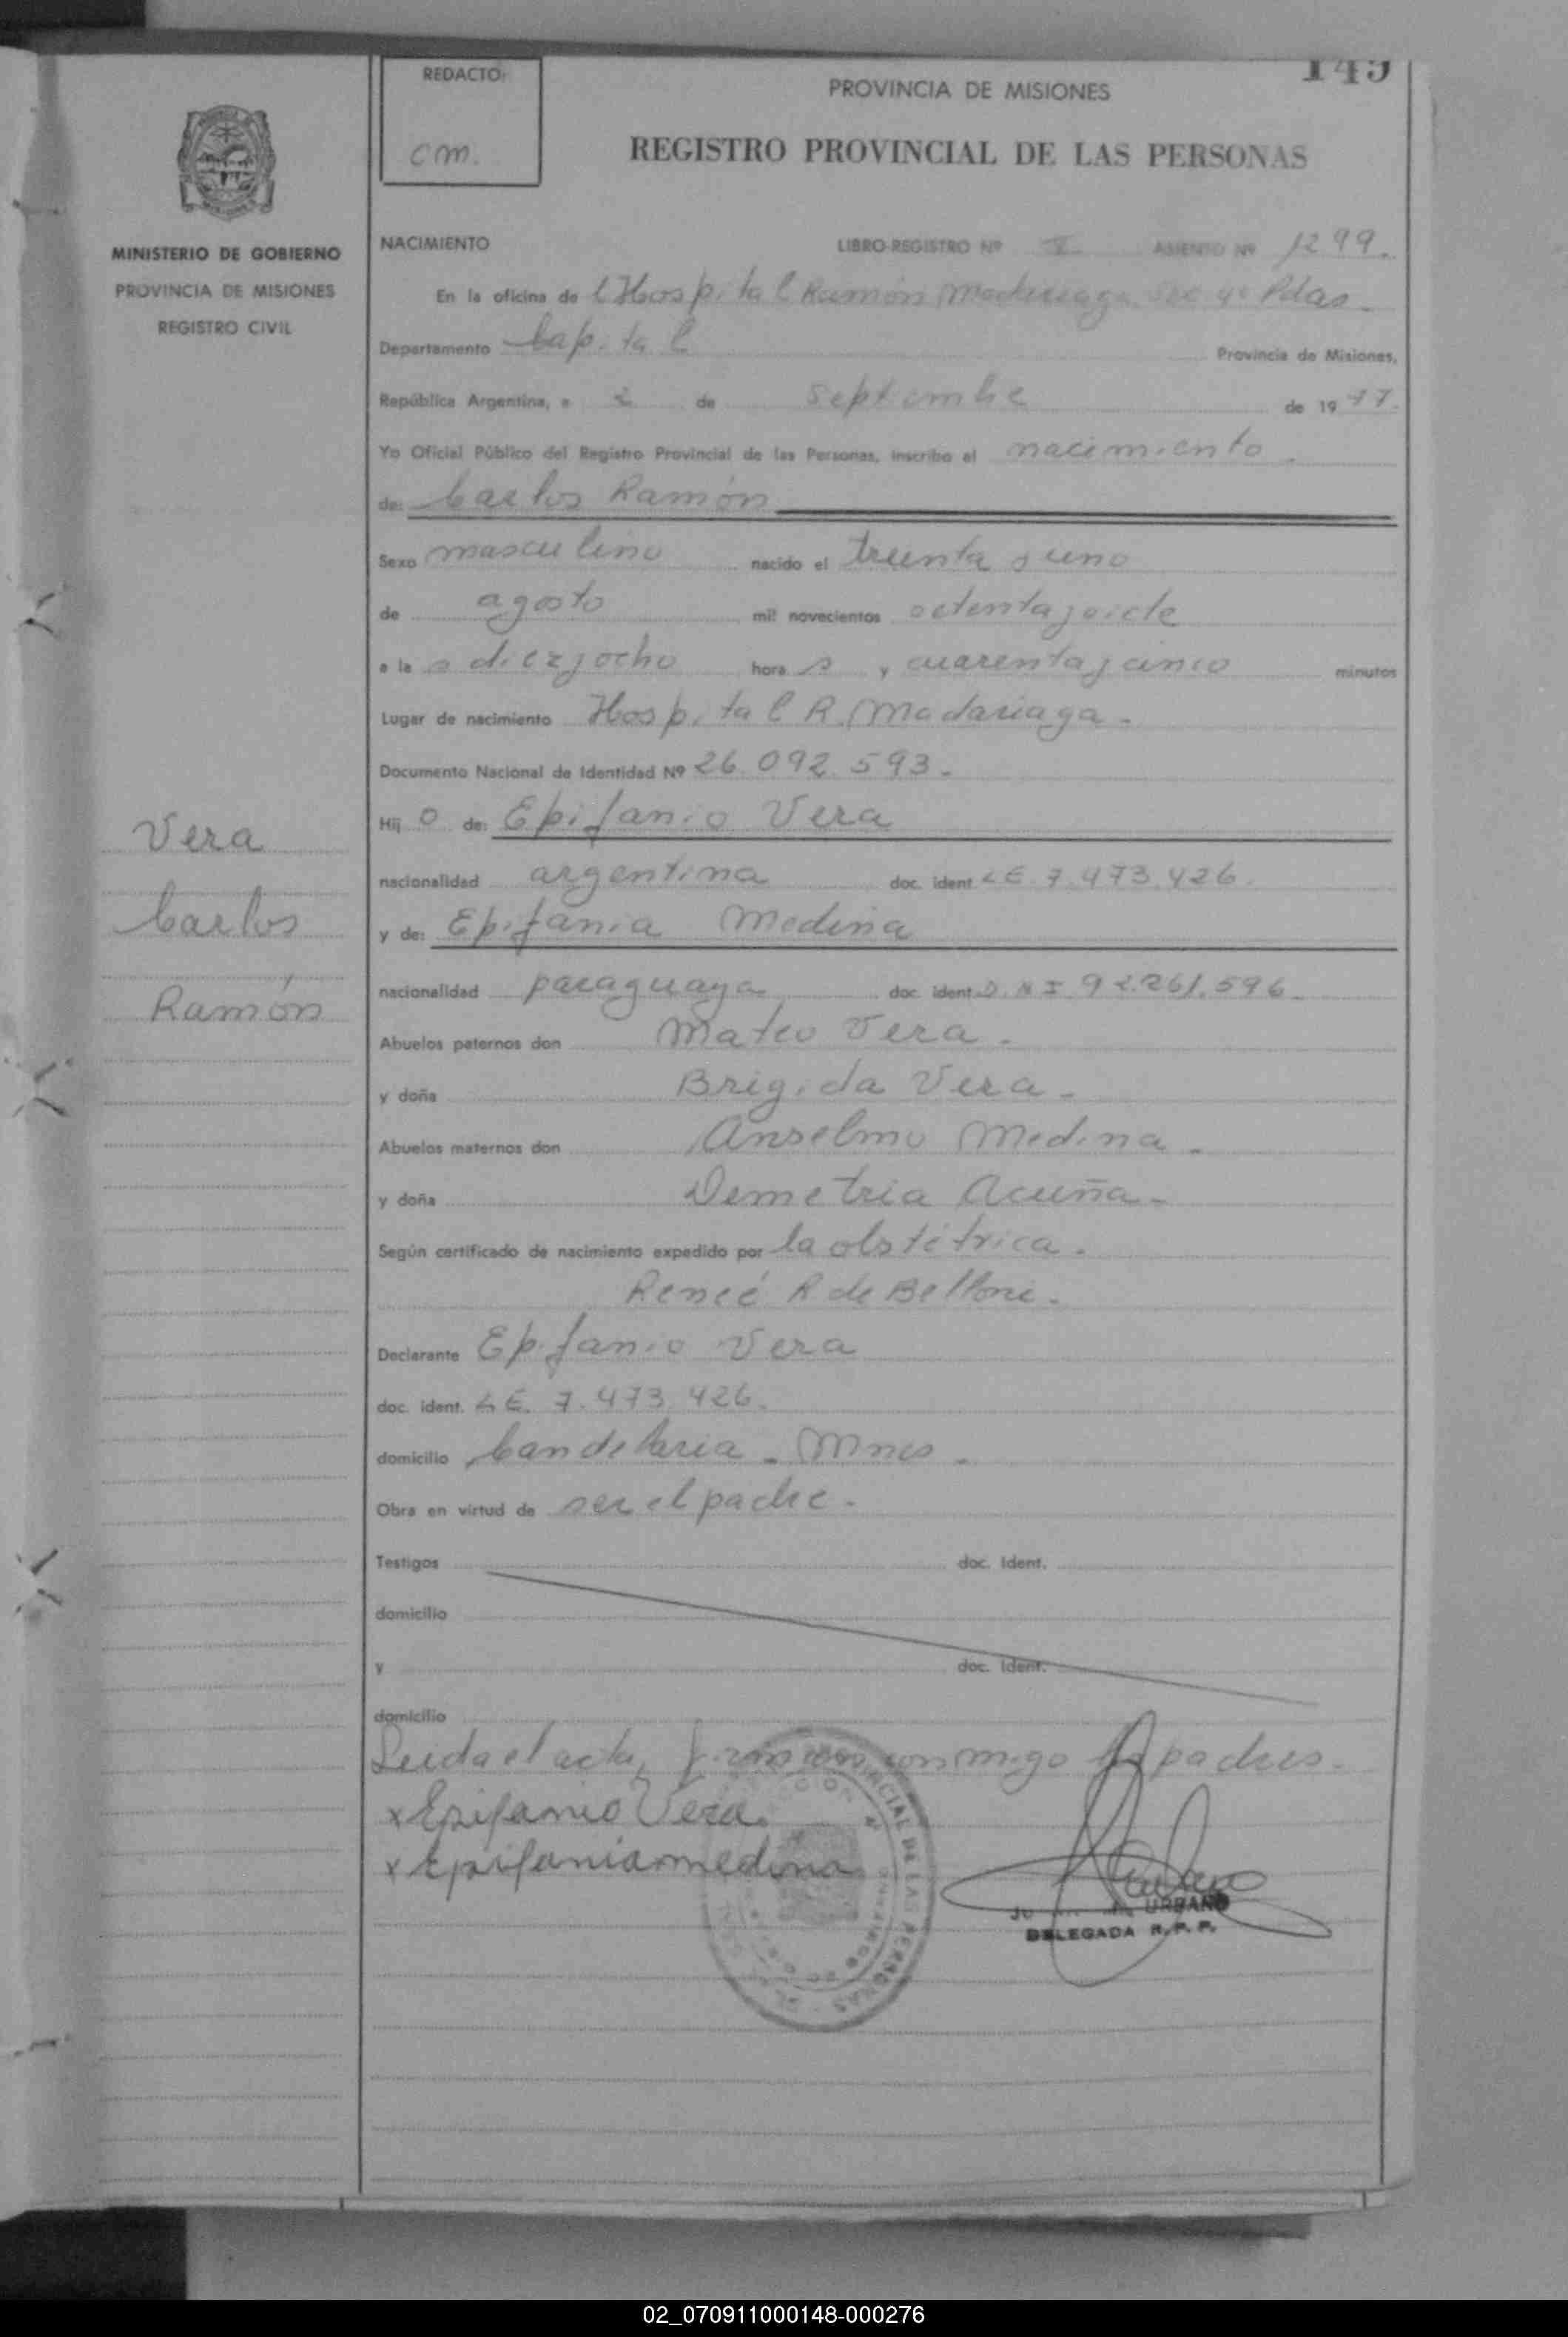 REDACTO:
cm.
149
PROVINCIA DE MISIONES
REGISTRO PROVINCIAL DE LAS PERSONAS
MINISTERIO DE GOBIERNO
PROVINCIA DE MISIONES
REGISTRO CIVIL
NACIMIENTO LIBRO-REGISTRO Nº V ASIENTO Nº 1299.
En la oficina de l Hospital Ramón Madariaga Sec 4º Pdas.
Departamento Capital Provincia de Misiones,
República Argentina, a 2 de Septiembre de 1977.
Yo Oficial Público del Registro Provincial de las Personas, inscribo el nacimiento.
de: Carlos Ramón
Sexo masculino nacido el treinta y uno
de agosto mil novecientos setenta y siete
a la s diez y ocho hora s y cuarenta y cinco minutos
Lugar de nacimiento Hospital R. Madariaga.
Documento Nacional de Identidad Nº 26.092.593.
Hij o de: Epifanio Vera
nacionalidad argentina doc. ident. LE. 7.473.426.
y de: Epifania Medina
nacionalidad paraguaya doc. ident. D.N I 92.261.596.
Abuelos paternos don Mateo Vera.
y doña Brigida Vera.
Abuelos maternos don Anselmo Medina.
y doña Demetria Acuña.
Según certificado de nacimiento expedido por la obstétrica.
Reneé R de Belloni.
Declarante Epifanio Vera
doc. ident. LE. 7.473.426.
domicilio Candelaria. Mnes.
Obra en virtud de ser el padre.
Testigos doc. Ident.
domicilio
y doc. Ident.
domicilio
Leida el acta, firman conmigo los padres.
x Epifanio Vera
x Epifania medina
Vera
Carlos
Ramón
URBANO
DELEGADA R.P.P.
02_070911000148-000276